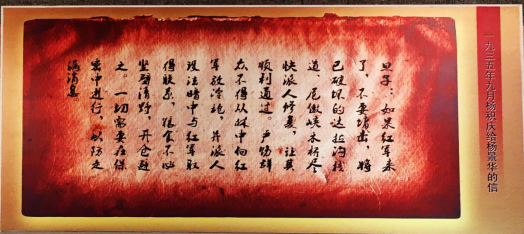 一九三五年九月杨积庆给杨景华的信
旦子：如果红军来
了，不要堵击，将
已破坏的达拉沟栈
道、尼傲峡木桥尽
快派人修复，让其
顺利通过。严饬群
众不得从林中向红
军放冷枪，并派人
设法暗中与红军取
得联系，粮食不必
坚壁清野，开仓避
之。一切需要在保
密中进行，以防走
漏消息